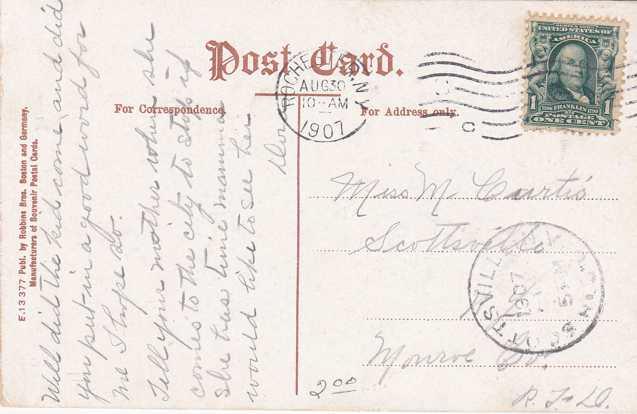 Post Card.
For Correspondence.
For Address only.
ROCHESTER, N.Y.
AUG 30
10-AM
1907
UNITED STATES OF
AMERICA
1 FRANKLIN 1
POSTAGE
ONE CENT
Well did the kid come and did
you put in a good word for
me I hope so.
Tell your mother when she
comes to the city to stop if
she has time mamma
would like to see her
Miss M Curtis
Scottsville
Monroe Co.
R.F.D.
2.00
SCOTTSVILLE
1907
E.13377 Publ. by Robbins Bros. Boston and Germany.
Manufacturers of Souvenir Postal Cards.